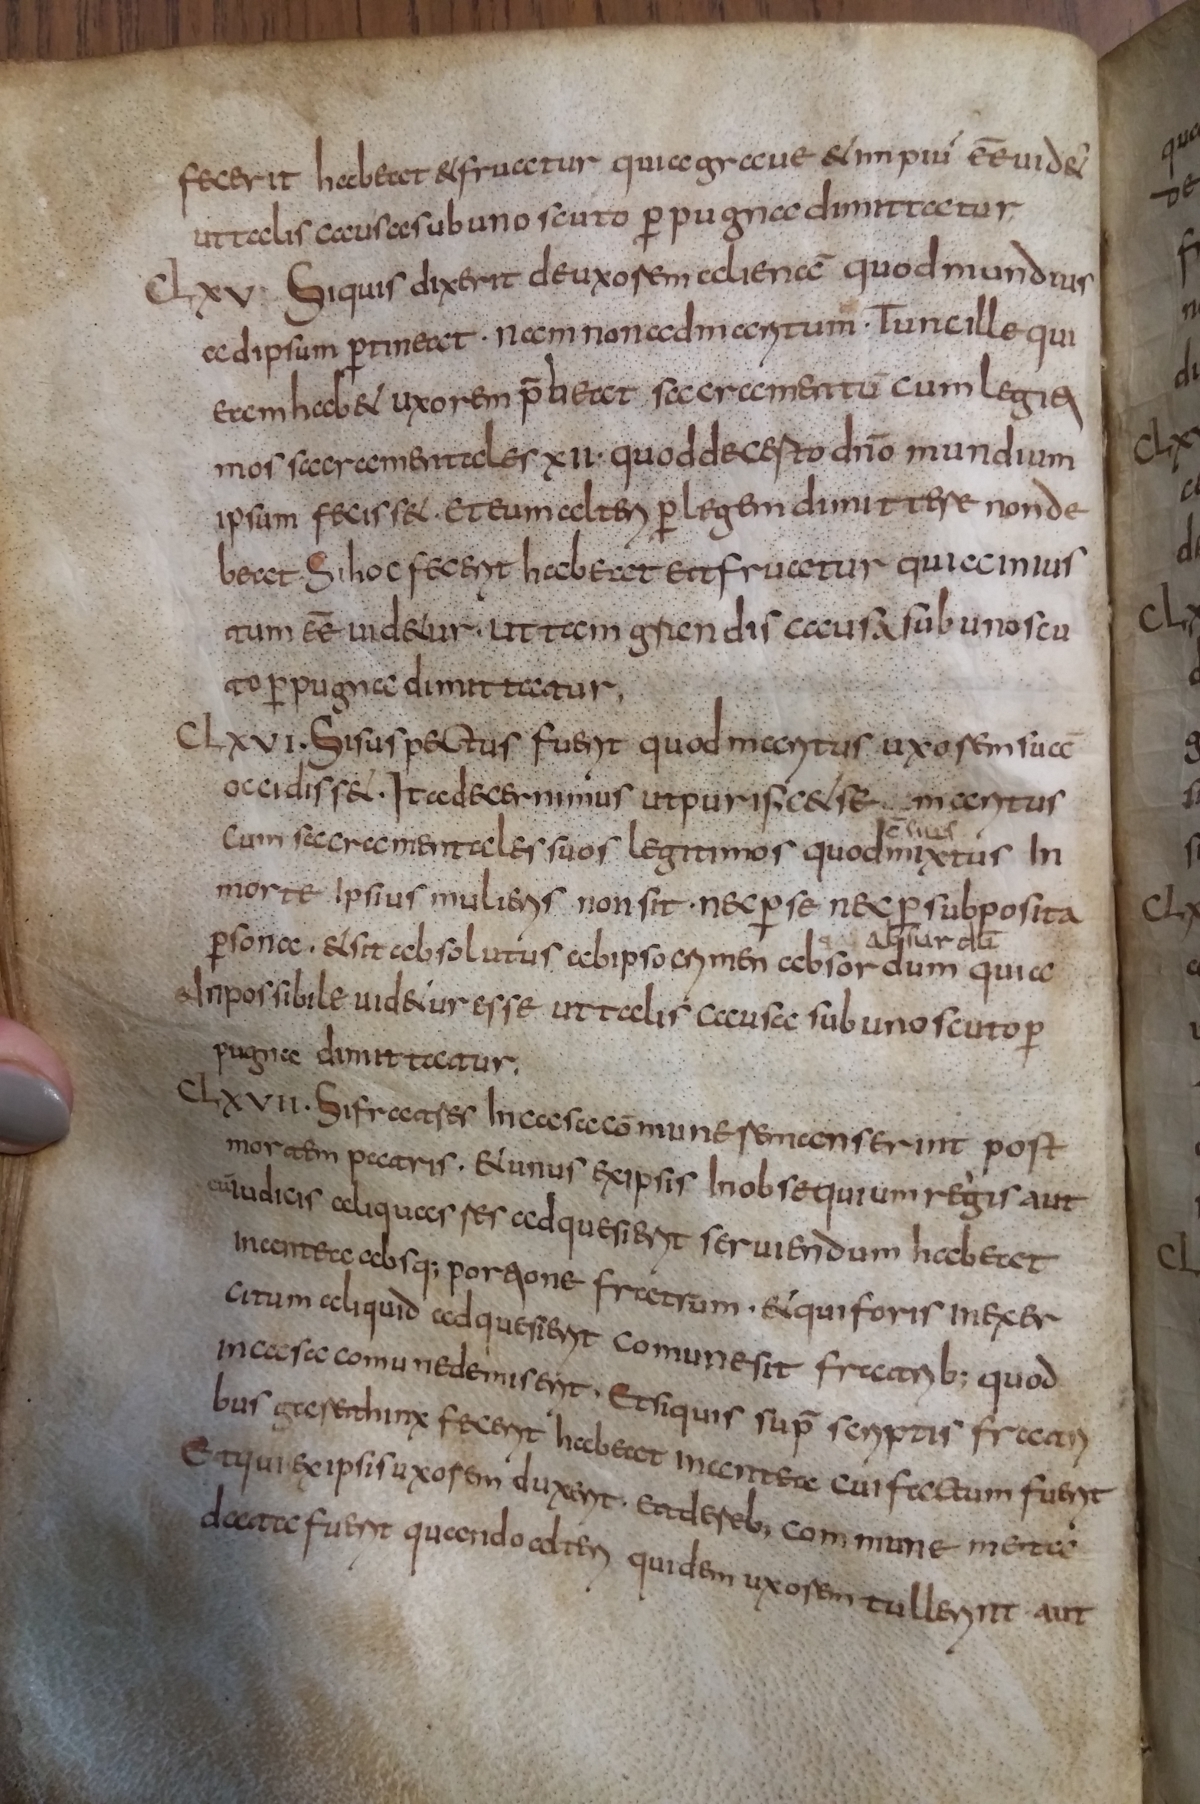 fecerit habeat & fruatur quia graue & inpiu ēē uid&
ut talis causa sub uno scuto ꝑ pugna dimittatur
CLXV. Siquis dixerit de uxorem aliena quod mundius
ad ipsum ꝑtineat. nam non ad maritum. Tunc ille qui
eam hab& uxorem p̄beat sacramentū cum legiti
mos sacramentales XII. quod de certo dn̄o mundium
ipsum feciss&. et eum alter ꝑ legem dimittere non de
beat. Si hoc fecerit habeat eā fruatur quia inius
tum ēē uid&ur. ut tam grandis causa sub uno scu
to ꝑ pugna dimittatur,
CLXVI. Si suspectus fuerit quod maritus uxorem suā
occidiss&. Ita decernimus ut purific& se maritus
cum sacramentales suos legitimos quod mixtus In
morte Ipsius mulieris non sit. nec ꝑ se nec ꝑ subposita
absurdū
ꝑsona. & sit absolutus ab ipso crimen absordum quia
Inpossibile uid&ur esse ut talis causa sub uno scuto ꝑ
pugna dimittatur.
CLXVII. Si fratres In casa cōmune remanserint post
mortem patris. & unus ex ipsis In obsequium regis aut
cū iudicis aliquas res adquesierit seruiendum habeat
in antea absq; portione fratrum. & qui foris in exer
citum aliquid adquesierit comune sit fratrib; quod
in casa comune demiserit. Et siquis sup̄ scriptis fratri
bus garethinx fecerit habeat in antea cui factum fuerit
Et qui ex ipsis uxorem duxerit. et de reb; commune meta
data fuerit quando alteri quidem uxorem tullerint aut